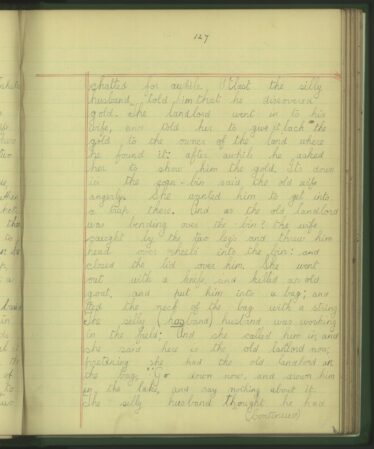 127
chatted for awhile. At last the silly
husband told him that he discovered
gold. The landlord went in to his
wife, and told her to give it back the
gold to the owner of the land where
he found it: after awhile he asked
her to show him the gold. It down
in the bin said the old wife
angerly. She wanted him to get into
a trap there. And as the old landlord
was bending over the bin; the wife
caught by the two legs and threw him
head over wheels into the bin: and
closed the lid over him. She went
out with a knife, and killed an old
goat, and put him into a bag; and
tied the neck of the bag with a string
The silly (husband) husband was working
in the field: And she called him in, and
she said here is the old lanlord now;
pretending she had the old landlord in
the bag. Go down now, and drown him
in the lake, and say nothing about it.
The silly husband thought he had
(continued)